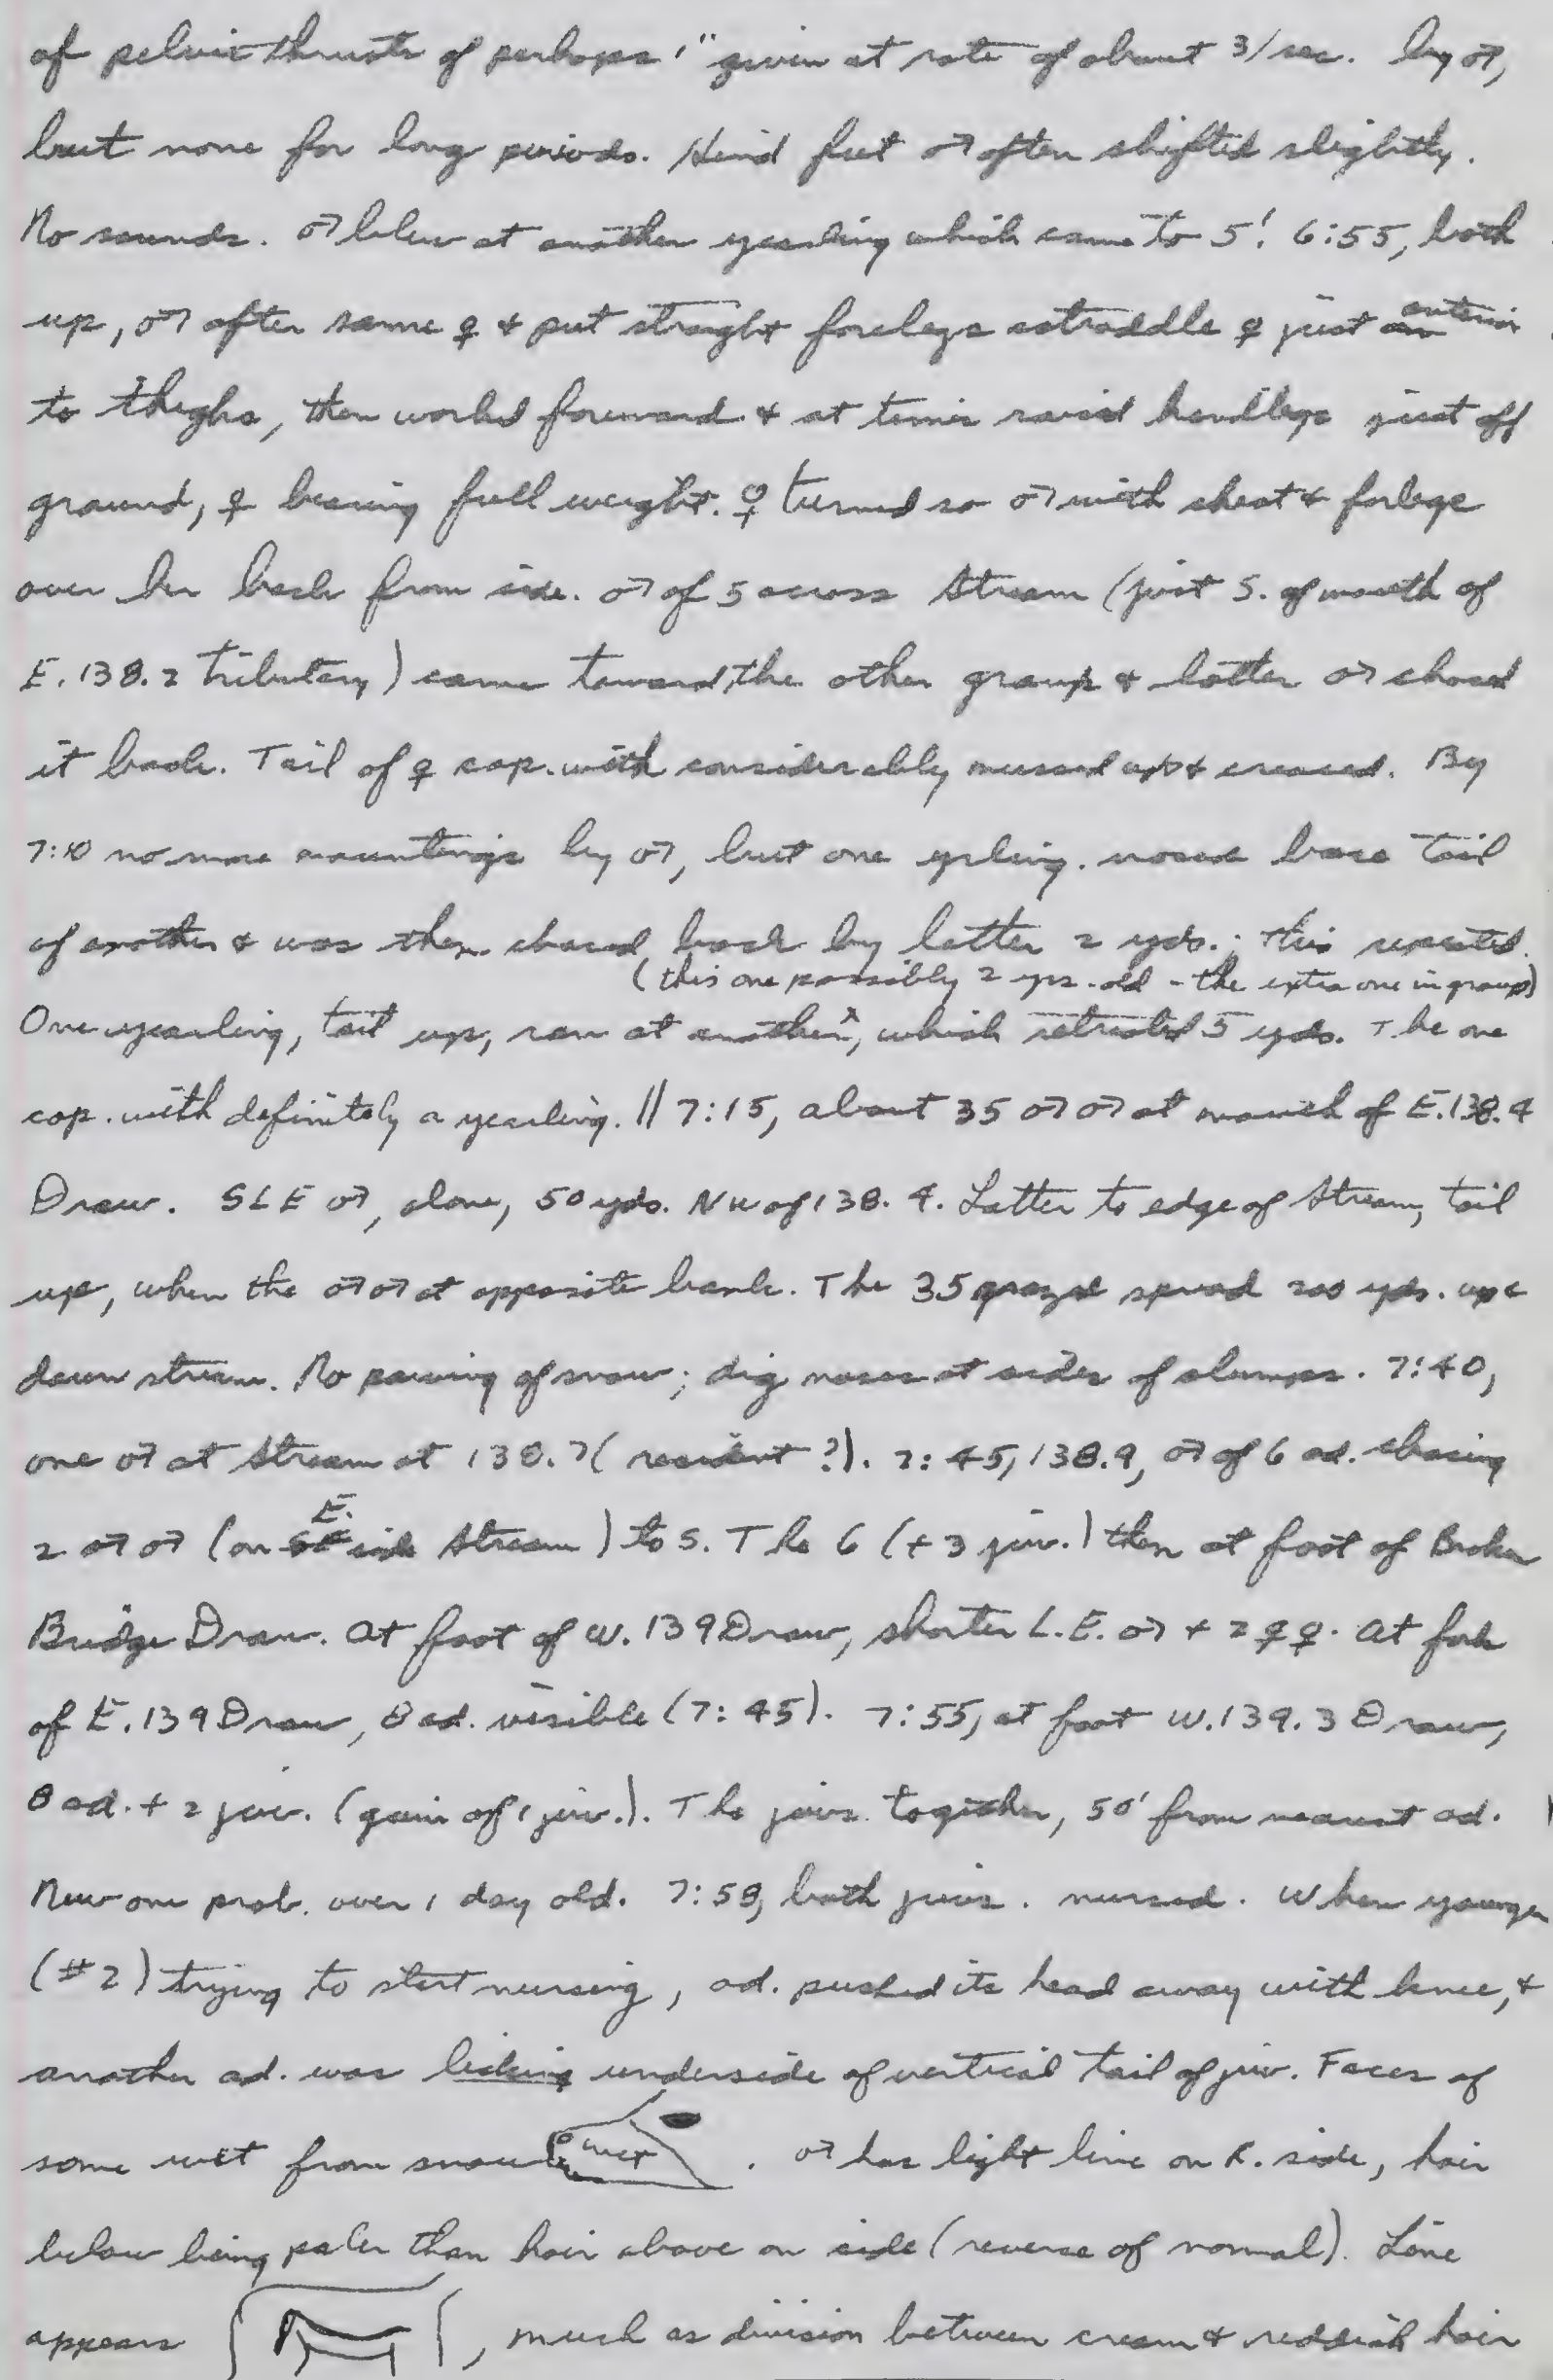 of pelvic thrusts of perhaps 1" given at rate of about 3/sec. by ♂,
but none for long periods. Hind feet ♂ often shifted slightly.
No sounds. ♂ blew at another yearling which came to 5'. 6:55, both
up, ♂ after same ♀ & put straight forelegs astraddle ♀ just anterior
to thighs, then worked forward & at times raised hindlegs just off
ground, ♀ bearing full weight. ♀ turned so ♂ with chest & forlegs
over her back from side. ♂ of 5 across stream (just S. of mouth of
E. 138.2 tributary) came toward the other group & latter ♂ chased
it back. Tail of ♀ cop. with considerably mussed up & creased. By
7:10 no more mountings by ♂, but one yrling. nosed base tail
of another & was then chased back by latter 2 yds.; this repeated.
(this one possibly 2 yrs. old - the extra one in group)
One yearling, tail up, ran at another^, which retreated 5 yds. The one
cop. with definitely a yearling. || 7:15, about 35 ♂♂ at mouth of E.138.4
Draw. SLE ♂, alone, 50 yds. NW of 138.4. Latter to edge of stream, tail
up, when the ♂♂ at opposite bank. The 35 grazed spread 200 yds. up &
down stream. No pawing of snow; dig noses at sides of clumps. 7:40,
one ♂ at stream at 138.7 (resident?). 7:45, 138.9, ♂ of 6 ad. chasing
2 ♂♂ (on E. side stream) to S. The 6 (+ 3 juv.) then at foot of Broken
Bridge Draw. At foot of W. 139 Draw, shorter L.E. ♂ + 2 ♀♀. At fork
of E. 139 Draw, 8 ad. visible (7:45). 7:55, at foot W. 139.3 Draw,
8 ad. + 2 juv. (gain of 1 juv.). The juvs. together, 50' from nearest ad.
New one prob. over 1 day old. 7:58, both juvs. nursed. When younger
(#2) trying to start nursing, ad. pushed its head away with knee, &
another ad. was licking underside of vertical tail of juv. Faces of
some wet from snow wet. ♂ has light line on R. side, hair
below being paler than hair above on side (reverse of normal). Line
appears , much as division between cream & reddish hair